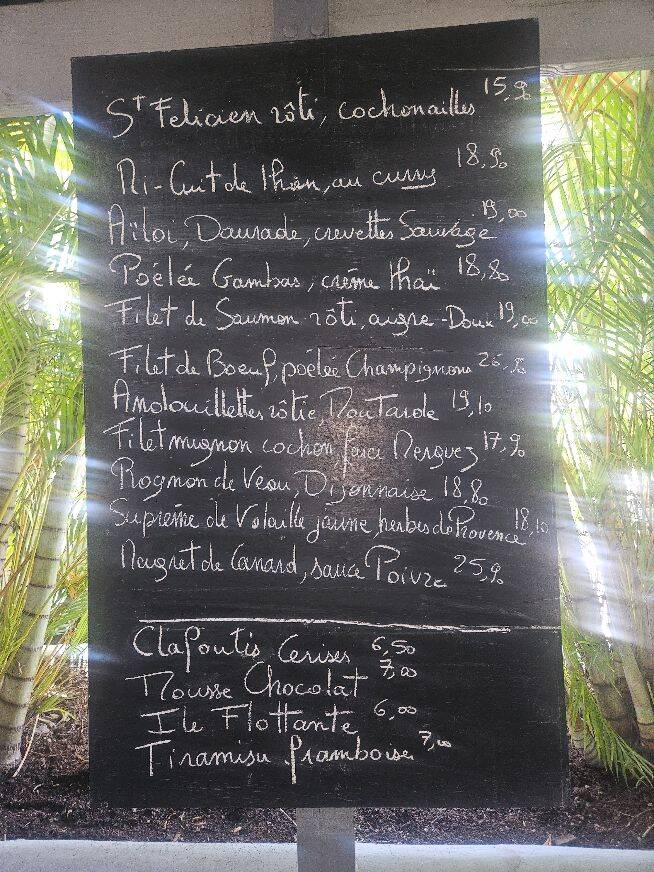 St Felicien rôti, cochonailles 15,90
Mi-Cuit de Thon, au curry 18,90
Aïloi, Daurade, crevettes Sauvage 19,00
Poélée Gambas, crème thaï 18,80
Filet de Saumon rôti, aigre-Doux 19,00
Filet de Boeuf, poélée Champignons
Andouillettes rôtie, Moutarde 19,10
Filet mignon cochon farci Merguez 17,90
Rognon de Veau, Dijonnaise 18,80
Suprême de Volaille jaune, herbes de Provence 18,10
Magret de Canard, sauce Poivre 25,90
Clafoutis Cerises 6,50
Mousse Chocolat 7,00
Ile Flottante 6,00
Tiramisu framboise 7,00